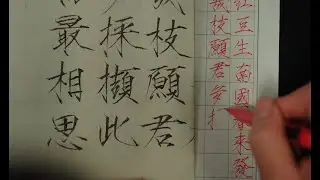 紅豆生南國春來發
幾枝願君多扌
枝願君
採擷此
最相思